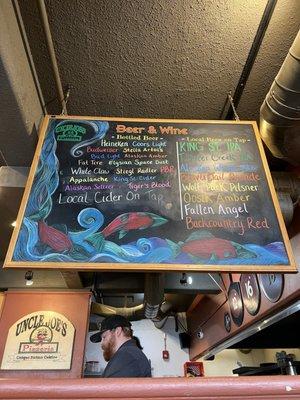 Beer & Wine
~ Bottled Beer ~
Heineken Coors Light
Budweiser Stella Artois
Bud Light Alaskan Amber
Fat Tire Elysian Space Dust
White Claw Stiegl Radler PBR
Appalanche King St. Cider
Alaskan Seltzer Tiger's Blood
Local Cider on Tap
~ Local Beers on Tap ~
KING ST. IPA
Blonde
Wolf Pack Pilsner
Oosik Amber
Fallen Angel
Backcountry Red
UNCLE JOE'S
Pizzeria